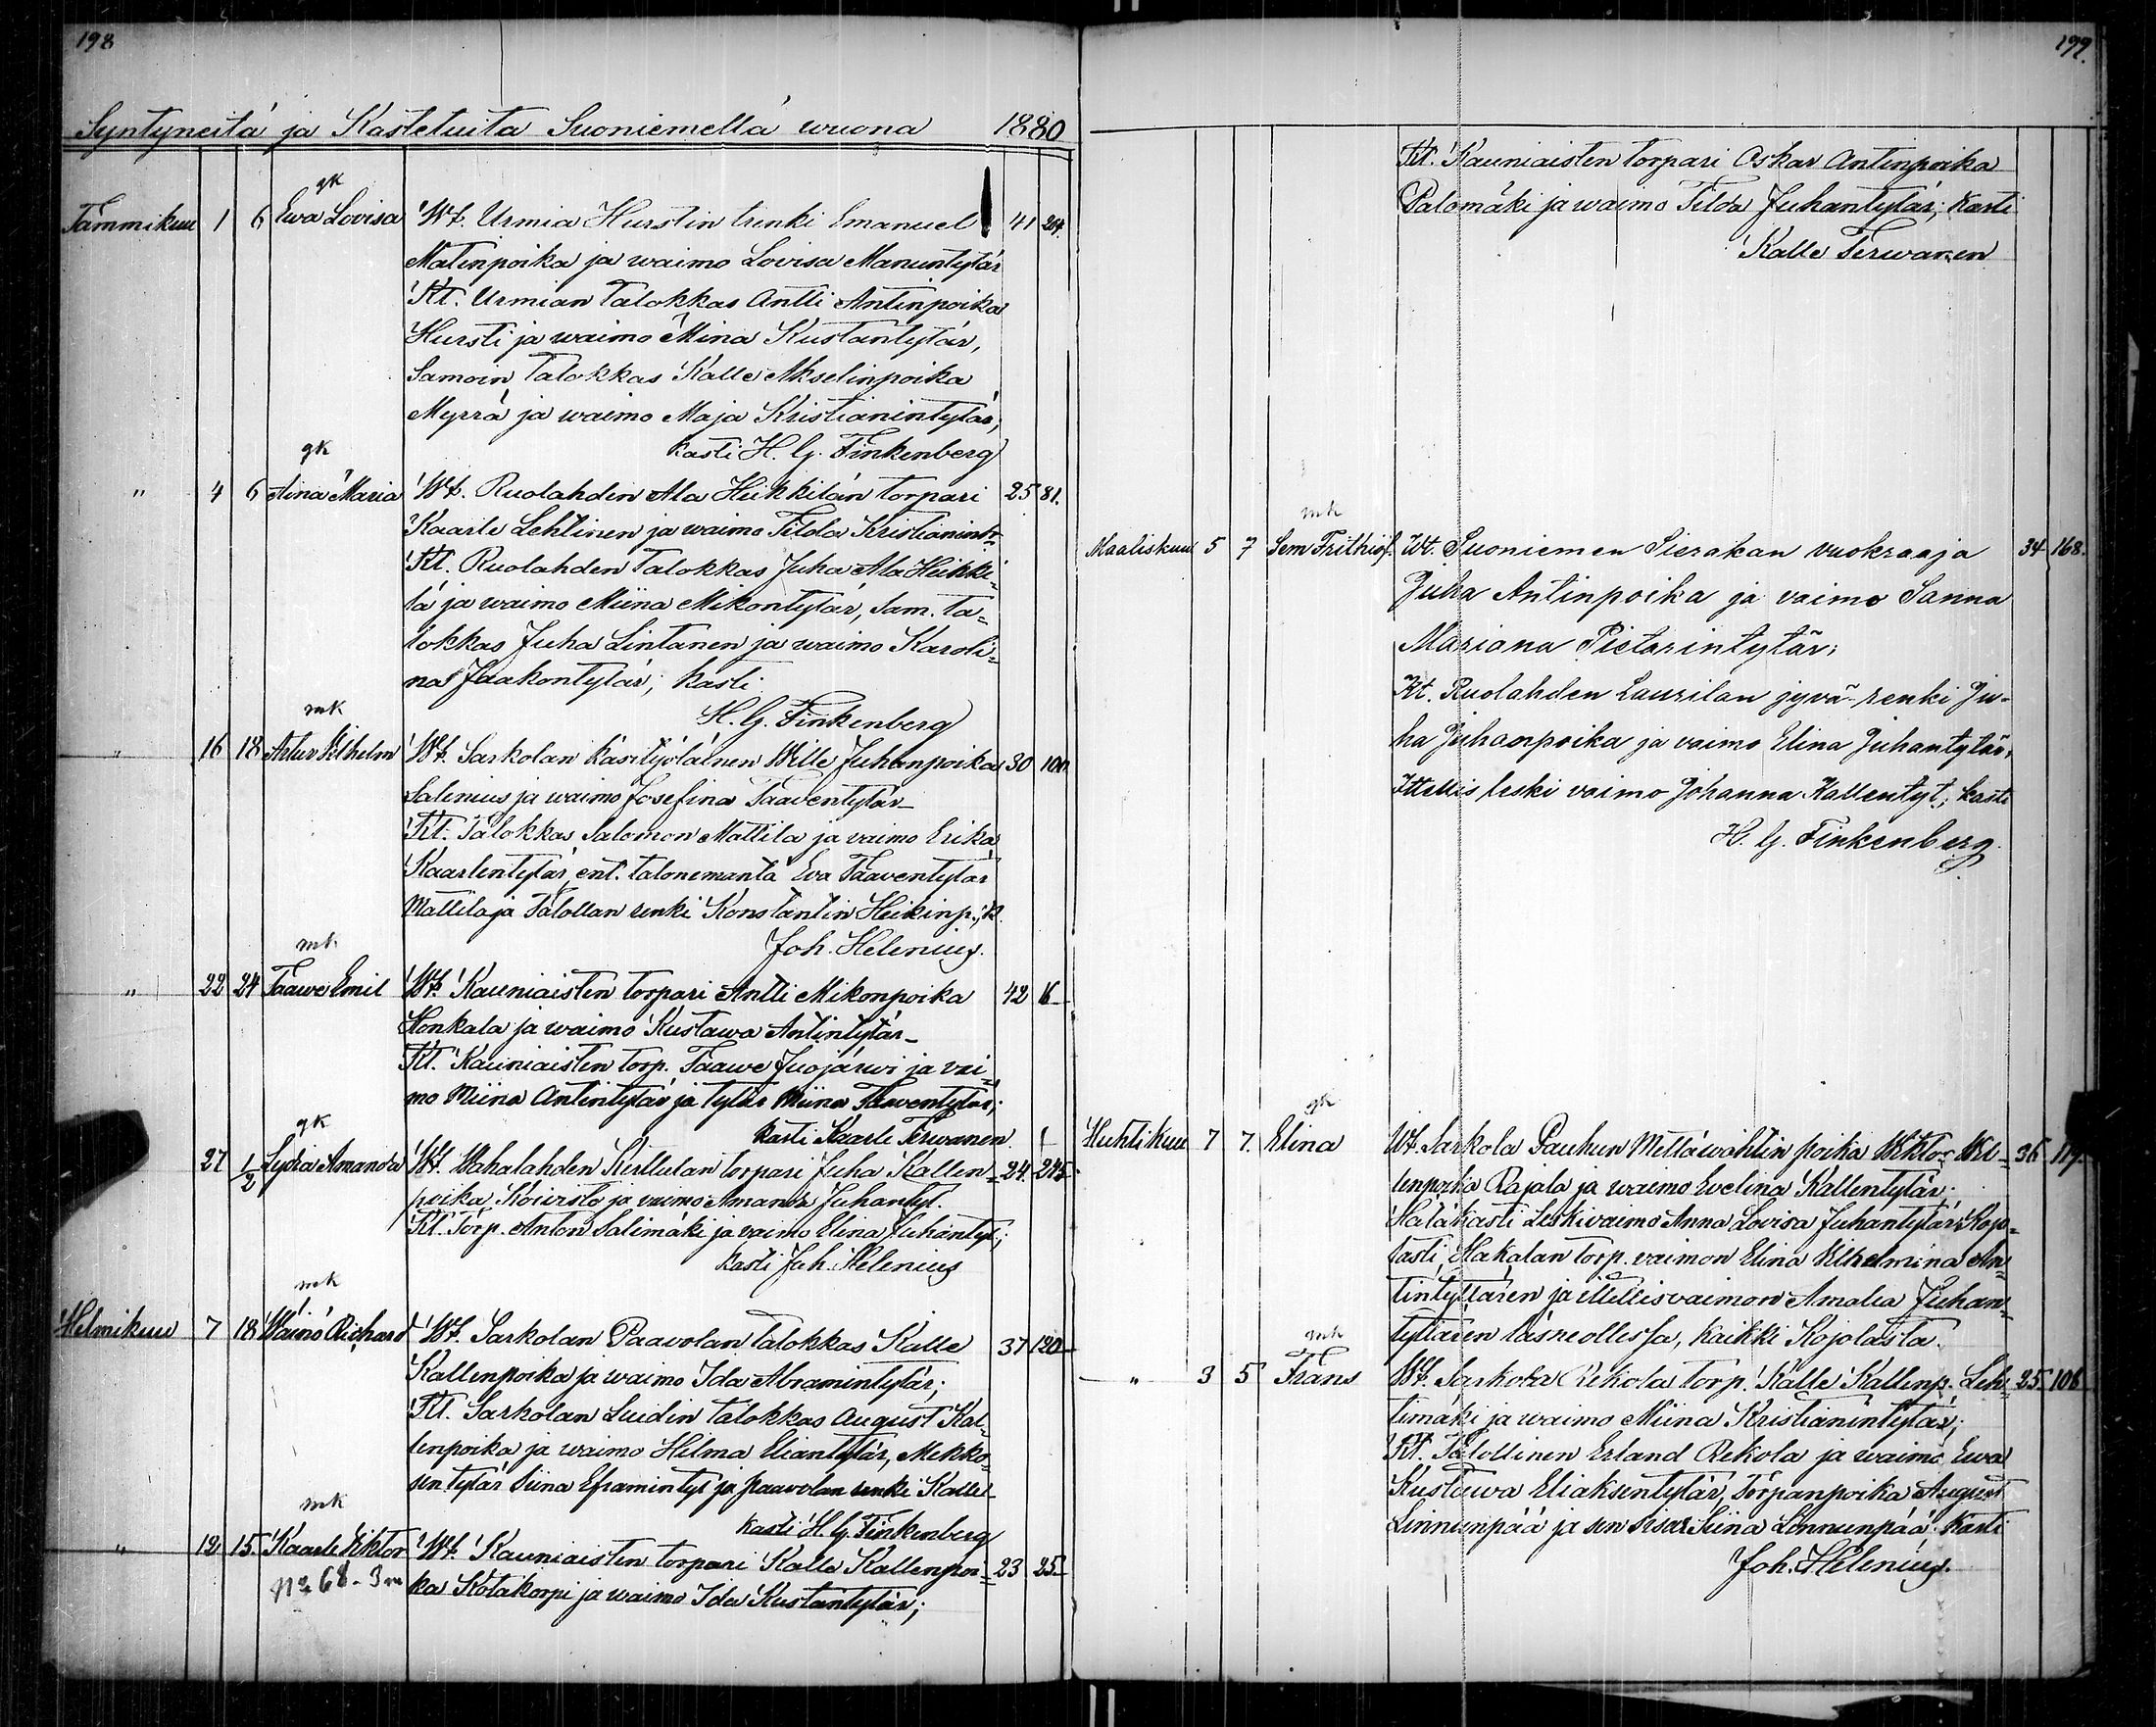 198
Syntyneitä ja Kastetuita Suoniemellä wuona 1880
gk
Tammikuu 1 6 Ewa Lovisa Wt. Urmia Hurstin trenki Emanuel 41 264.
Matinpoika ja waimo Lovisa Manuntytär
Kt. Urmian Talokkas Antti Antinpoika
Hursti ja waimo Mina Kustantytär,
Samoin Talokkas Kalle Akselinpoika
Myrrä ja waimo Maja Kristianintytär;
kasti H. G. Finkenberg
gk
" 4 6 Aina Maria Wt. Ruolahden Ala Heikkilän torpari 25 81.
Kaarle Lehtinen ja waimo Tilda Kristianintr.
Kt. Ruolahden Talokkas Juha Ala Heikki=
lä ja waimo Miina Mikontytär, Sam. ta=
lokkas Juha Lintanen ja waimo Karoli=
na Jaakontytär; kasti
H. G. Finkenberg
mk
" 16 18 Artur Wilhelm Wt. Sarkolan käsityöläinen Wille Juhanpoika 30 100.
Salenius ja waimo Josefina Taaventytär
Kt. Talokkas Salomon Mattila ja vaimo Erika
Kaarlentytär, ent. talonemäntä Eva Taaventytär
Mattila ja Talollan renki Konstantin Heikinp.; k.
Joh. Helenius.
mk
" 22 24 Taawe Emil Wt. Kauniaisten torpari Antti Mikonpoika 42 16
Honkala ja waimo Kustawa Antintytär
Kt. Kauniaisten torp. Taawe Juojärwi ja vai=
mo Miina Antintytär ja tytär Miina Taaventytär;
kasti Kaarle Terwanen
gk
27 1/2 Lydia Amanda Wt. Wahalahden Kerttulan torpari Juha Kallen= 24. 245
poika Koivisto ja vaimo Amanda Juhantyt.
Kt. Torp. Anton Salimäki ja vaimo Elina Juhantyt;
kasti Joh. Helenius
mk
Helmikuu 7 18 Wäinö Richard Wt. Sarkolan Paavolan talokkas Kalle 37 120
Kallenpoika ja waimo Ida Abramintytär;
Kt. Sarkolan Luidin talokkas August Kal=
lenpoika ja waimo Hilma Eliantytär, Mekko=
sen tytär Siina Eframintyt ja paavolan renki Kalle
kasti H. G. Finkenberg
mk
" 12 15. Kaarle Viktor Wt. Kauniaisten torpari Kalle Kallenpoi= 23 25
No 68-3 m ka Kotakorpi ja waimo Ida Kustantytär;
199.
Kt. Kauniaisten torpari Oskar Antinpoika
Palomäki ja waimo Tilda Juhantytär; kasti
Kalle Terwanen
mk
Maaliskuu 5 7 Sem Frithiof. Wt. Suoniemen Pierakan vuokraaja 34 168.
Juha Antinpoika ja vaimo Sanna
Mariana Pietarintytär;
Kt. Ruolahden Laurilan jyvä-renki Ju-
ha Juhanpoika ja vaimo Elina Juhantytär,
Ittellis leski vaimo Johanna Kallentyt; kasti
H. G. Finkenberg.
gk
Huhtikuu 7 7. Elina Wt. Sarkola Pauhun Mettäwahtin poika Wiktor Wil= 36 119.
lenpoika Rajala ja waimo Evelina Kallentytär;
Hätäkasti Leskivaimo Anna Lovisa Juhantytär Kojo=
lasti, Hakalan torp. vaimon Elina Wilhelmina An=
tintyttären ja ittellisvaimon Amalia Juhan=
tyttären läsneollessa, kaikki Kojolasta.
mk
" 3 5 Frans Wt. Sarkola Rekola torp. Kalle Kallenp. Leh= 25 106
timäki ja waimo Miina Kristianintytär;
Kt. Talollinen Erland Rekola ja waimo Ewa
Kustawa Eliaksentytär, Torpanpoika August
Linnunpää ja sen sisar Siina Linnunpää. Kasti
Joh. Helenius.